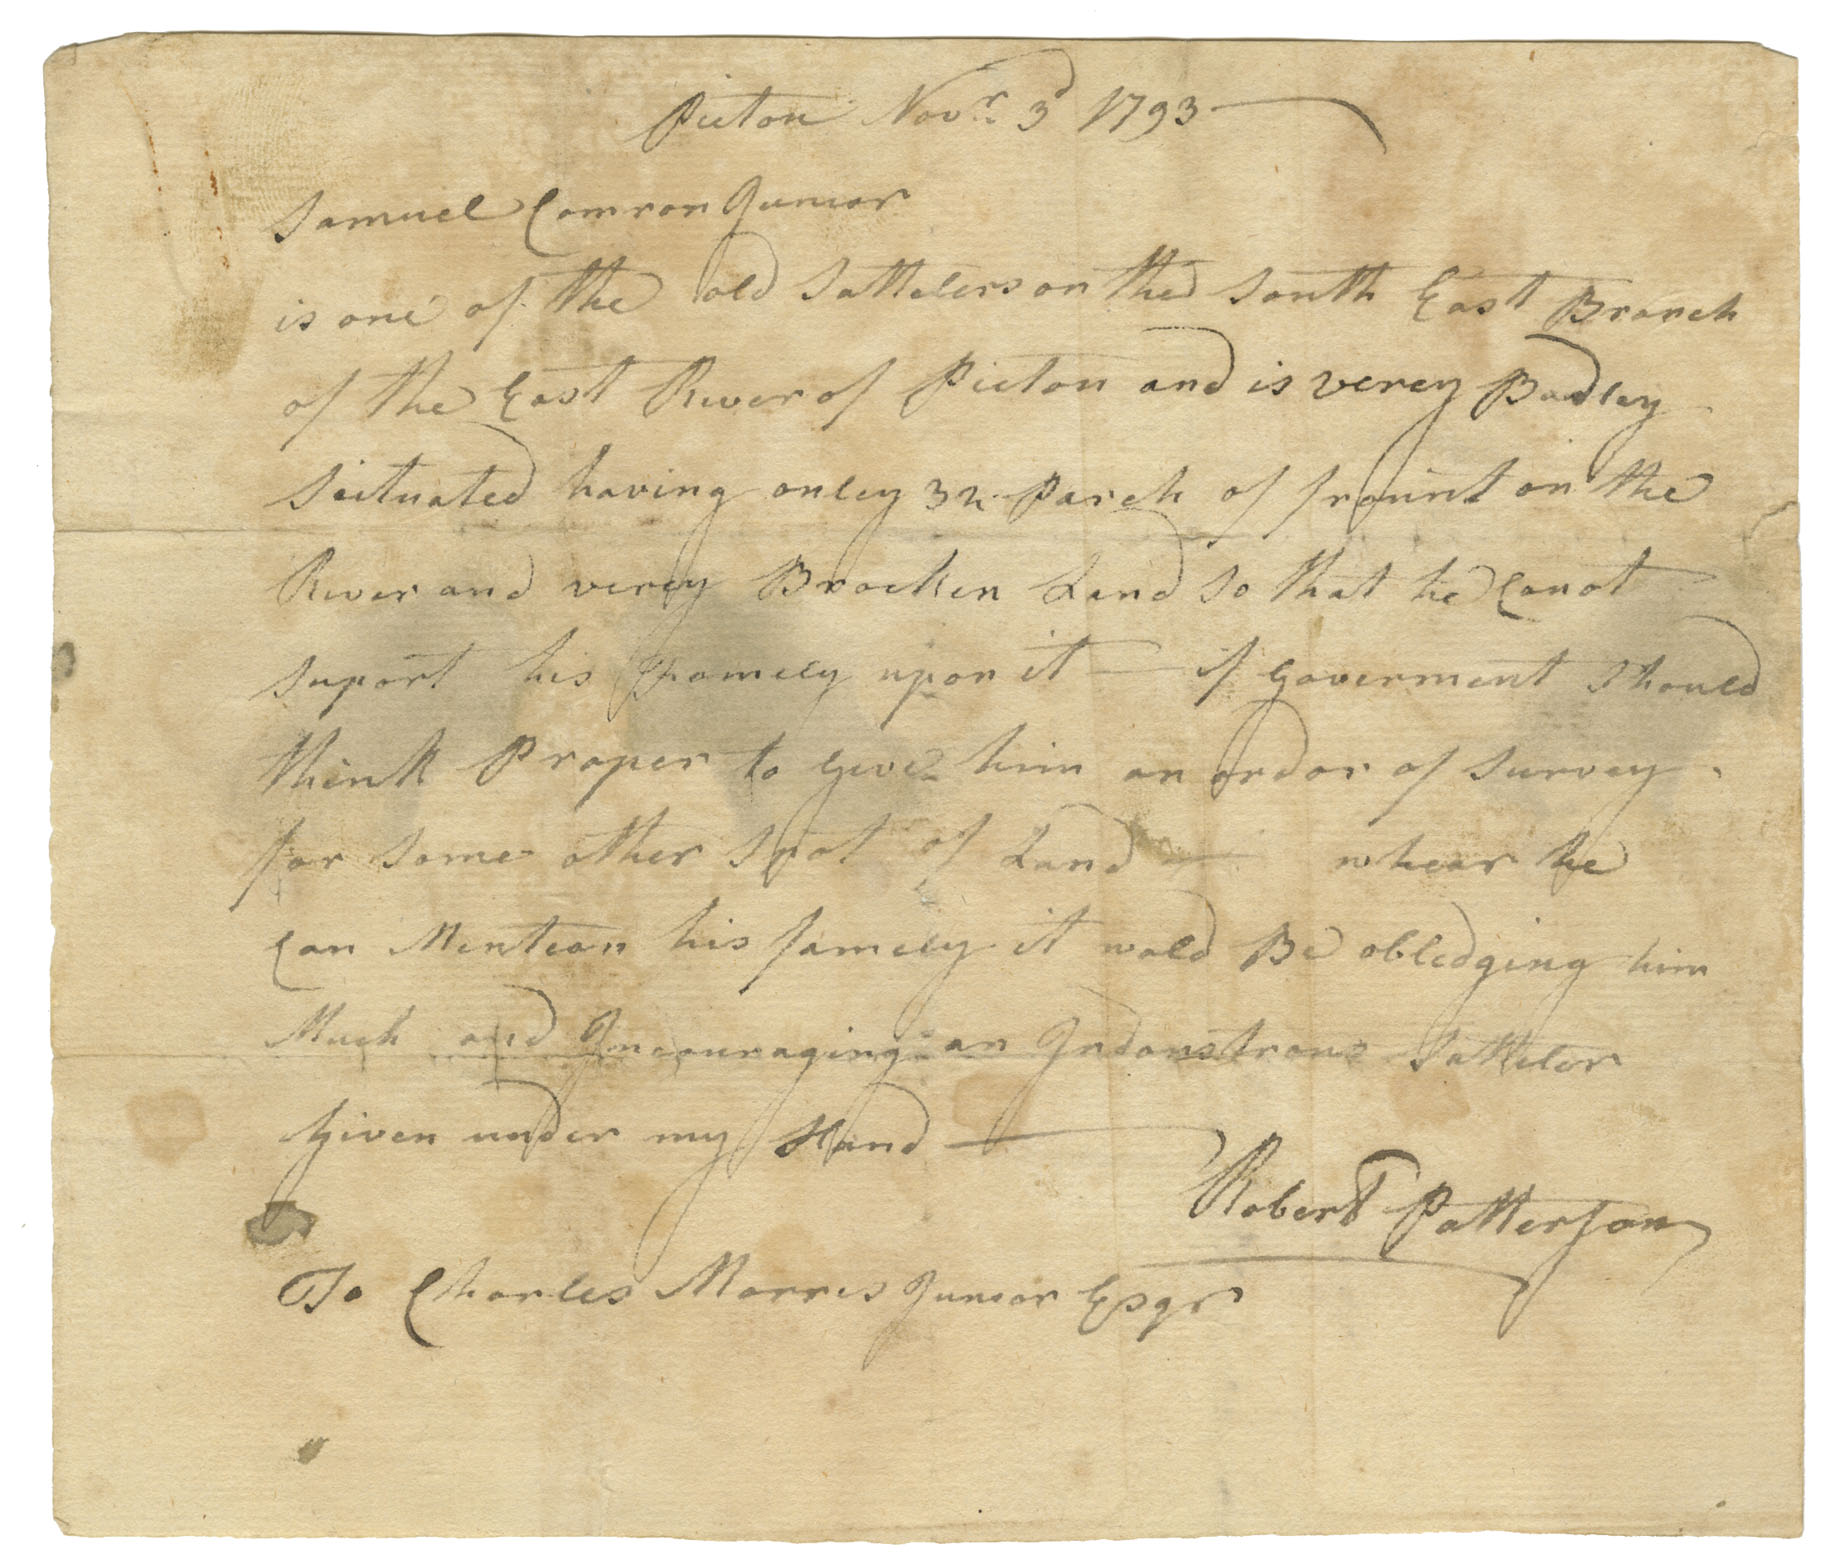 Picton Novr. 3d 1793
Samuel Camron Junior
is one of the old Sattelers on the South East Branch
of the East River of Picton and is verey Badley
Seituated having onley 32 Parch of frount on the
River and verey Brocken Land so that he Canot
suport his famely upon it — if Goverment Should
think Proper to Give him an ordor of Survey
for Some other Spot of Land — whear he
Can Mentean his famely it wold Be obledging him
Much and Incouraging an Indoustrous Satteler
Given under my Hand —
Robert Patterson
To Charles Morris Junior Esqr